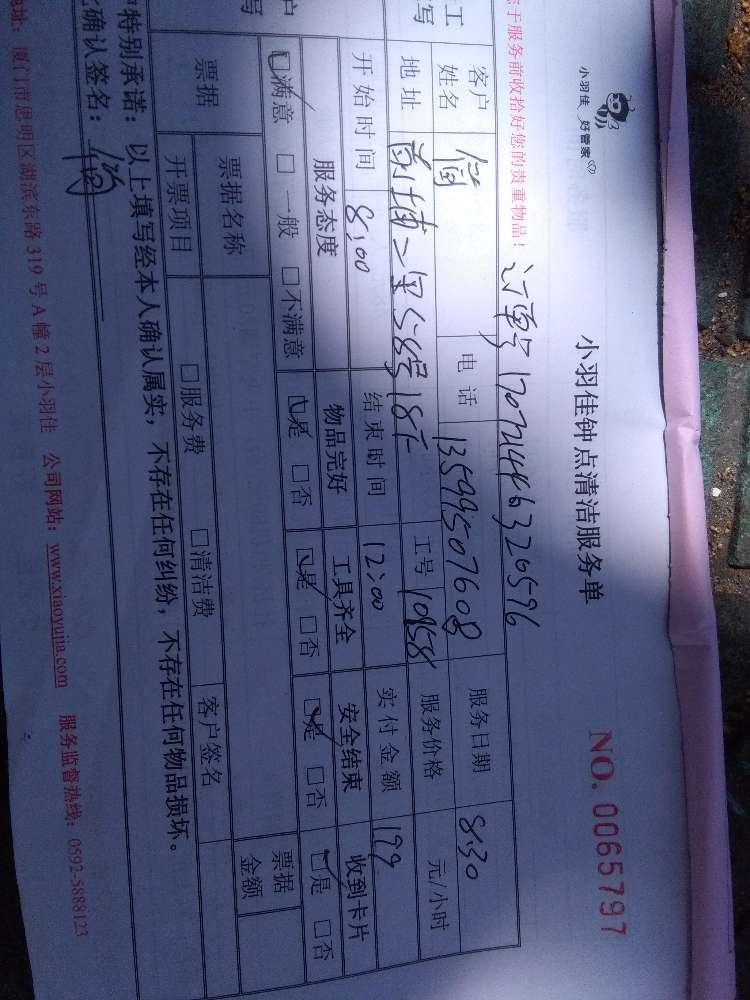 小羽佳 好管家
小羽佳钟点清洁服务单
NO. 0065797
于服务前收拾好您的贵重物品！
客户姓名 电话 13599507608 服务日期 8.30
地址 工号 1058 服务价格 元/小时
开始时间 8:00 结束时间 12:00 实付金额 199
服务态度 物品完好 工具齐全 安全结束 收到卡片
☑满意 □一般 □不满意 ☑是 □否 ☑是 □否 ☑是 □否 ☑是 □否
票据 票据名称 票据金额
开票项目 □服务费 □清洁费 客户签名
特别承诺：以上填写经本人确认属实，不存在任何纠纷，不存在任何物品损坏。
确认签名：
地址：厦门市思明区湖滨东路319号A幢2层小羽佳 公司网站：www.xiaoyujia.com 服务监督热线：0592-5888123